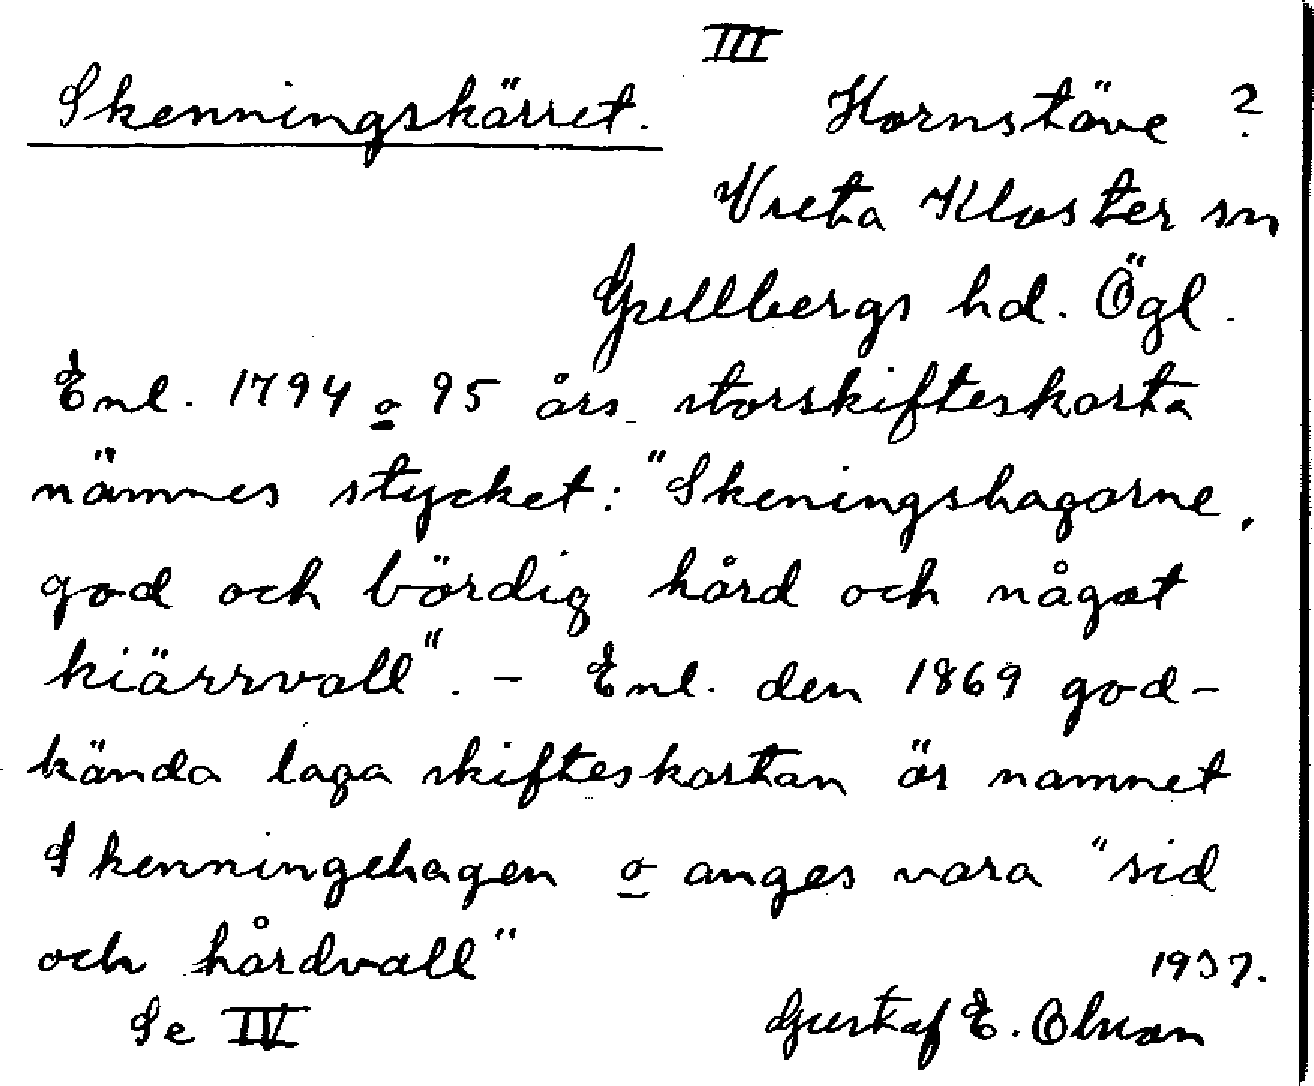 III
Skenningskärret. Hornstäve ?
Vreta Kloster sn
Gullbergs hd. Ögl.
Enl. 1794 o 95 års storskifteskarta
nämnes stycket: "Skeningshagarne,
god och bördig hård och något
kiärrvall". - Enl. den 1869 god-
kända laga skifteskartan är namnet
Skenningehagen o anges vara "sid
och hårdvall"
1937.
Se IV Gustaf E. Olsson